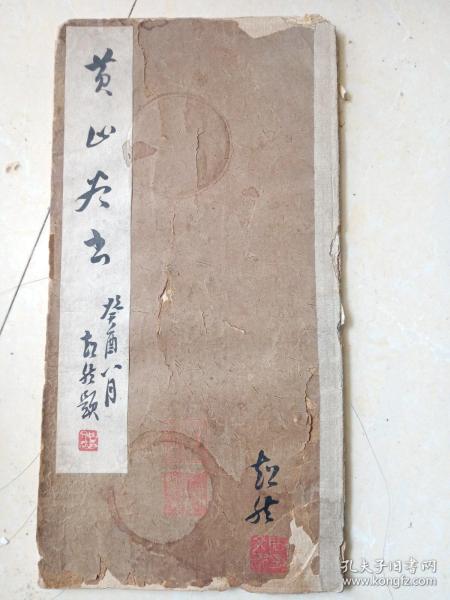 黄山谷书
癸酉八月
超然题
超然
孔夫子旧书网
www.kongfz.com